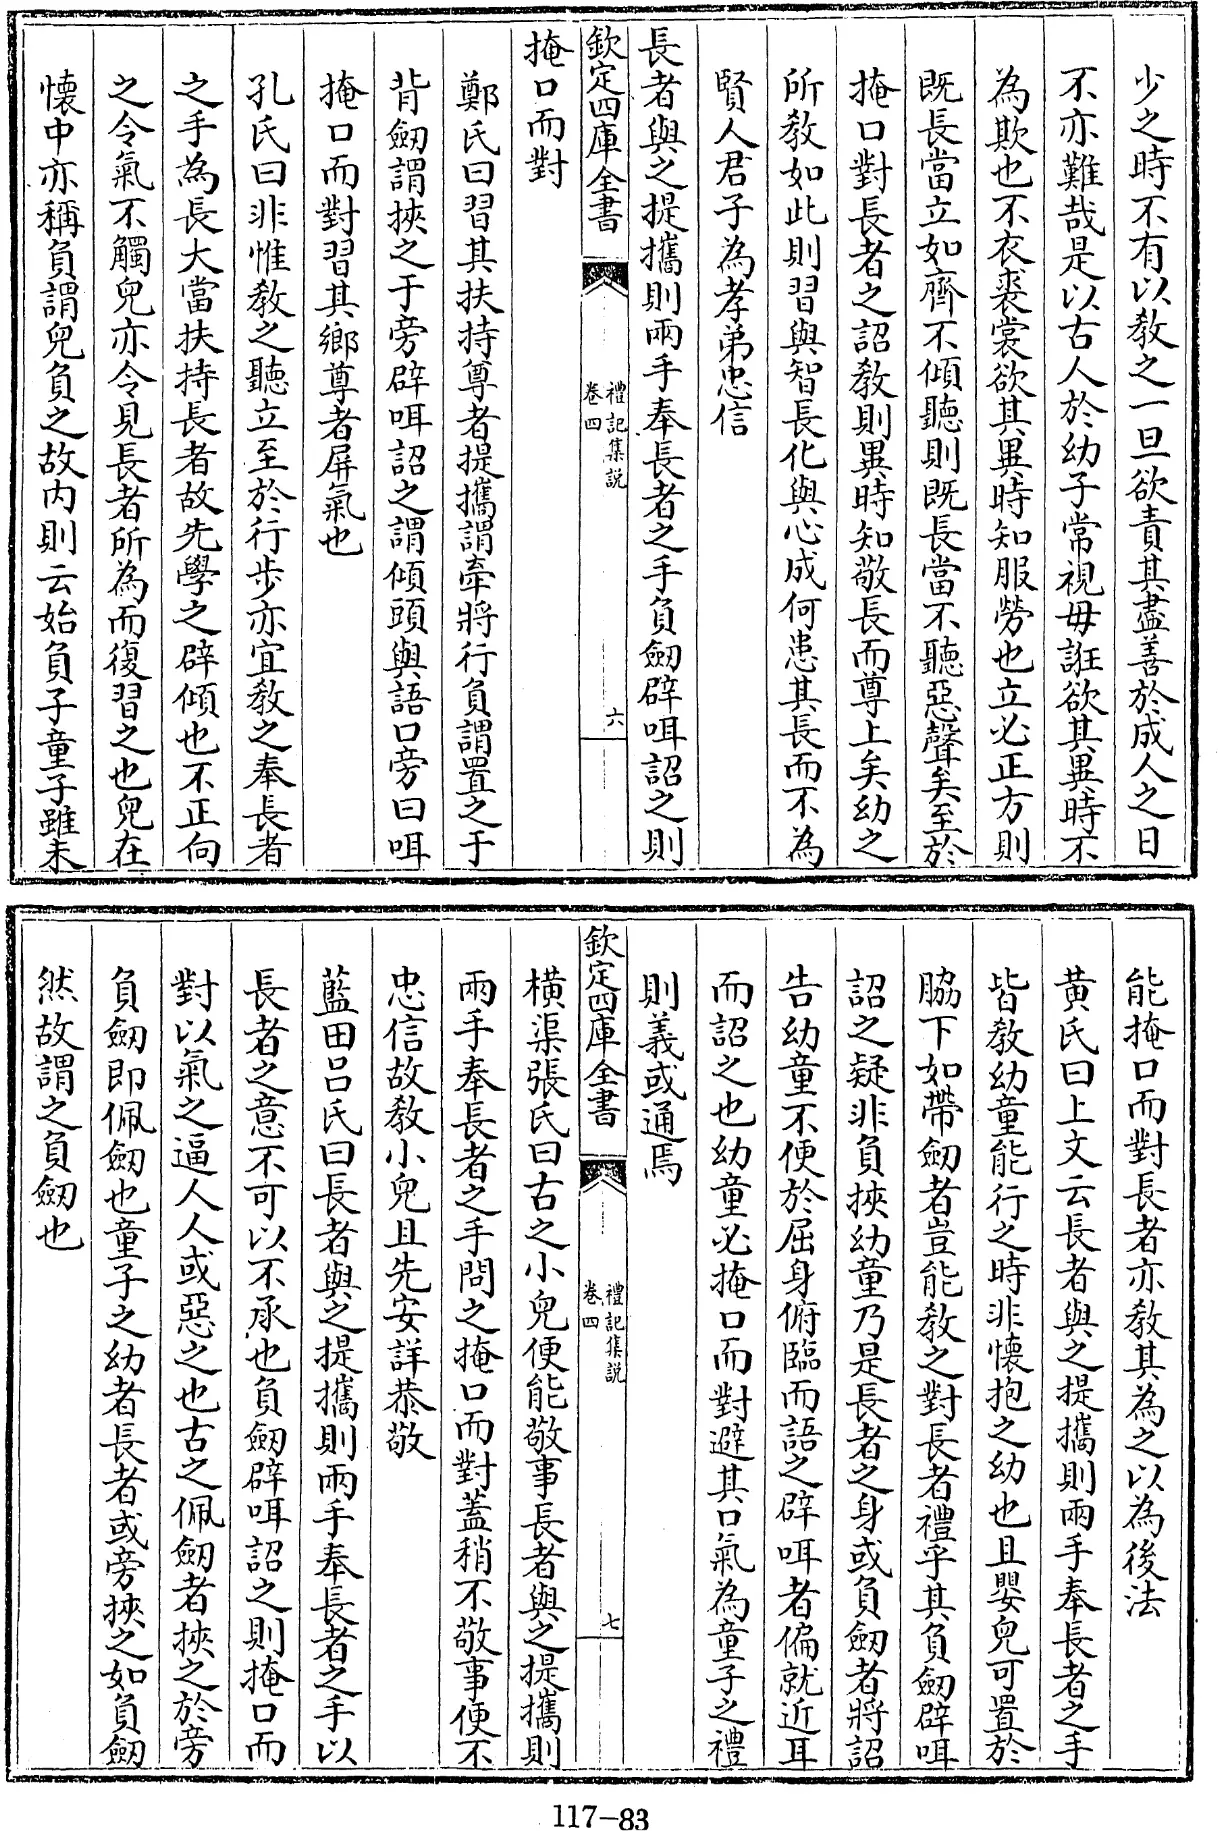 少之時不有以教之一旦欲責其盡善於成人之日
不亦難哉是以古人於幼子常視毋誑欲其異時不
為欺也不衣裘裳欲其異時知服勞也立必正方則
既長當立如齊不傾聽則既長當不聽惡聲矣至於
掩口對長者之詔教則異時知敬長而尊上矣幼之
所教如此則習與智長化與心成何患其長而不為
賢人君子為孝弟忠信
長者與之提攜則兩手奉長者之手負劒辟咡詔之則
欽定四庫全書
禮記集說
卷四
六
掩口而對
鄭氏曰習其扶持尊者提攜謂牽將行負謂置之于
背劒謂挾之于旁辟咡詔之謂傾頭與語口旁曰咡
掩口而對習其鄉尊者屏氣也
孔氏曰非惟教之聽立至於行步亦宜教之奉長者
之手為長大當扶持長者故先學之辟傾也不正向
之令氣不觸兒亦令見長者所為而復習之也兒在
懷中亦稱負謂兒負之故内則云始負子童子雖未
能掩口而對長者亦教其為之以為後法
黄氏曰上文云長者與之提攜則兩手奉長者之手
皆教幼童能行之時非懷抱之幼也且嬰兒可置於
脇下如帶劒者豈能教之對長者禮乎其負劒辟咡
詔之疑非負挾幼童乃是長者之身或負劒者將詔
告幼童不便於屈身俯臨而語之辟咡者偏就近耳
而詔之也幼童必掩口而對避其口氣為童子之禮
則義或通焉
欽定四庫全書
禮記集說
卷四
七
橫渠張氏曰古之小兒便能敬事長者與之提攜則
兩手奉長者之手問之掩口而對蓋稍不敬事便不
忠信故教小兒且先安詳恭敬
藍田呂氏曰長者與之提攜則兩手奉長者之手以
長者之意不可以不承也負劒辟咡詔之則掩口而
對以氣之逼人人或惡之也古之佩劒者挾之於旁
負劒即佩劒也童子之幼者長者或旁挾之如負劒
然故謂之負劒也
117-83